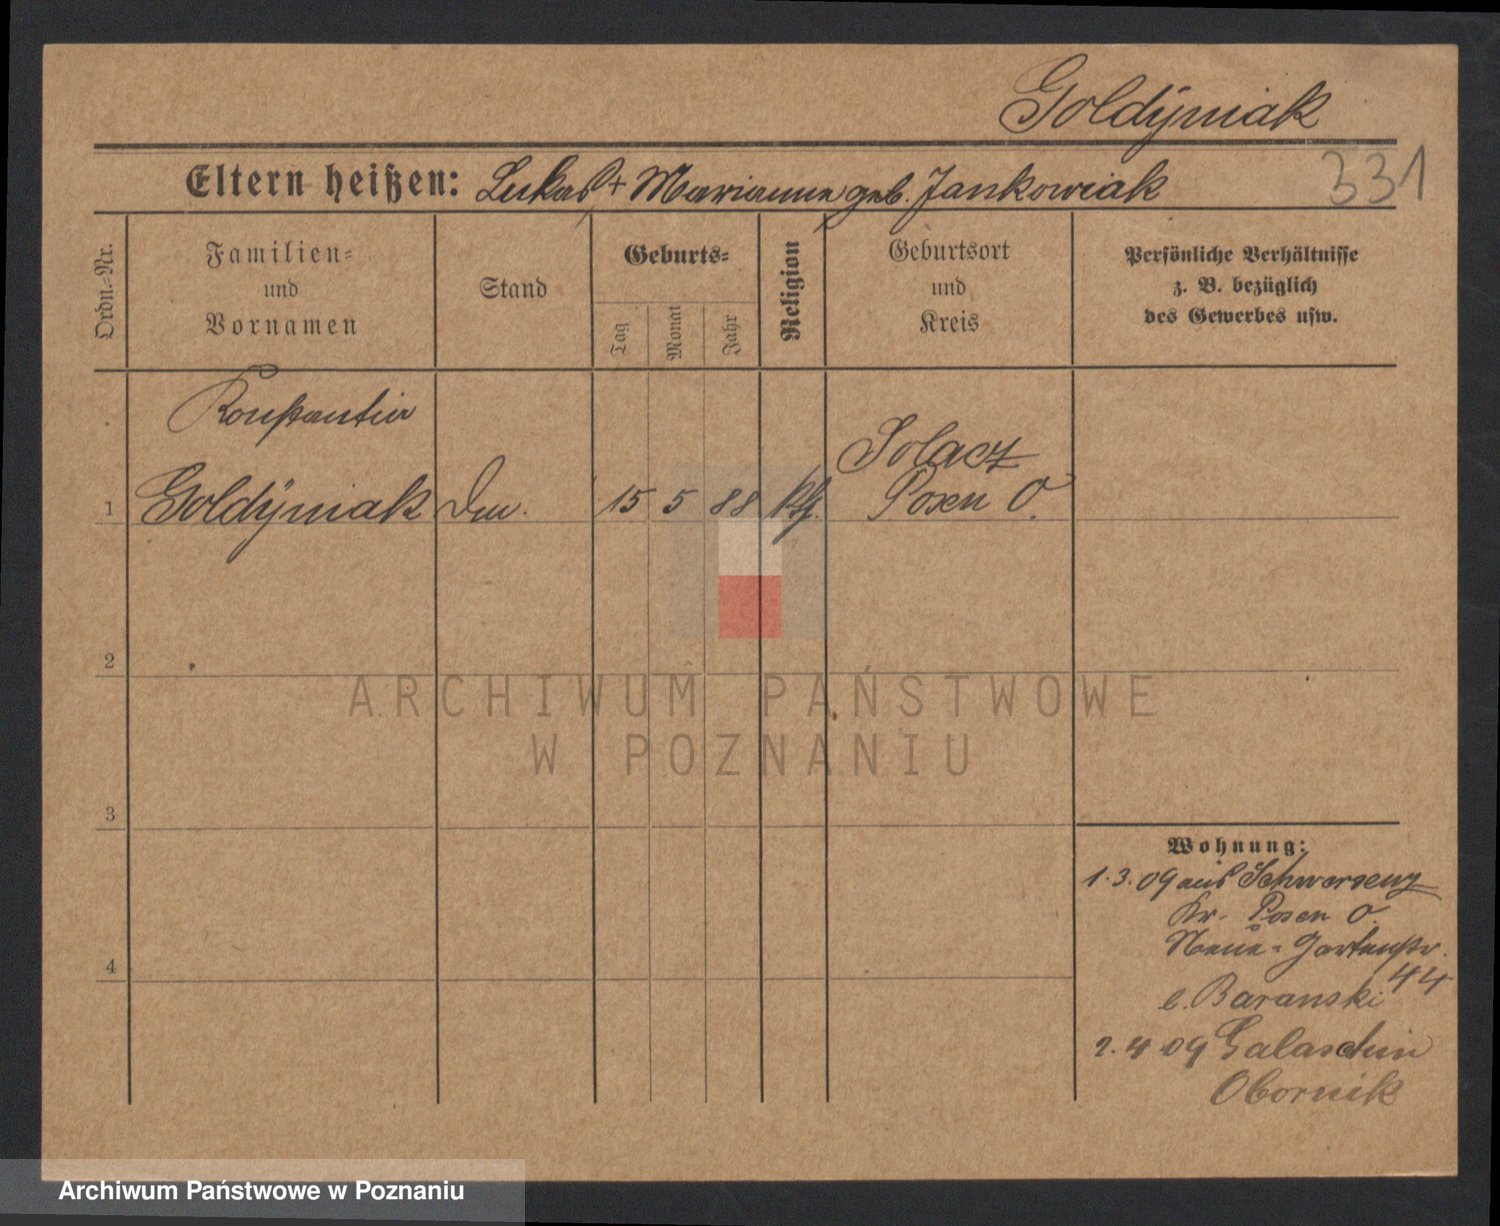 Goldyniak
331
Eltern heißen: Lukas + Marianna geb. Jankowiak
Ordn.-Nr.
Familien-
und
Vornamen
Stand
Geburts-
Tag
Monat
Jahr
Religion
Geburtsort
und
Kreis
Persönliche Verhältnisse
z. B. bezüglich
des Gewerbes usw.
Konstantin
Solacz
1 Goldyniak 15 5 88 kth. Posen O.
2
3
4
ARCHIWUM PAŃSTWOWE
W POZNANIU
Wohnung:
1.3.09 aus Schwersenz
Kr. Posen O.
Neue-Gartenstr.
44
b. Baranski
2.4.09
Obornik
Archiwum Państwowe w Poznaniu